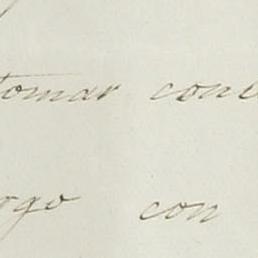 tomar con
ogo con